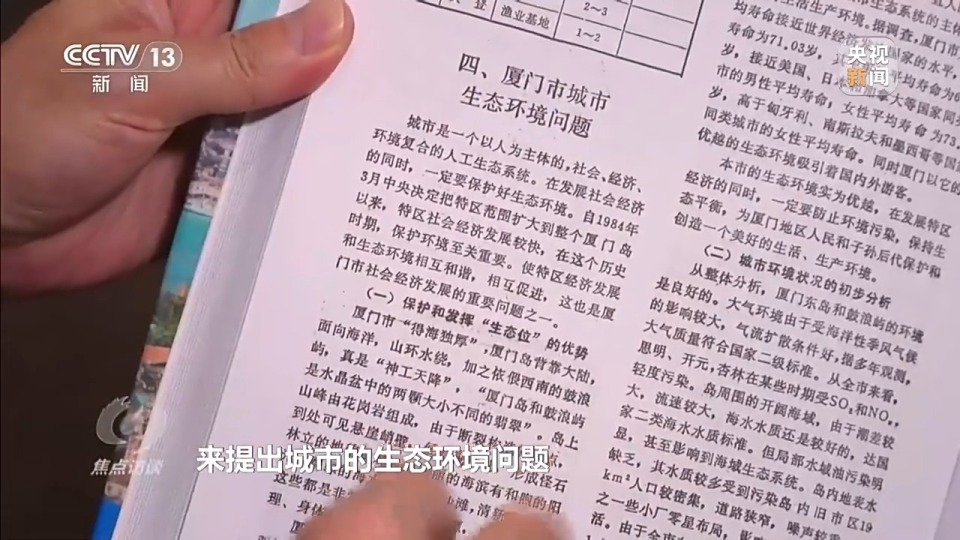 CCTV 13
新闻
央视
新闻
渔业基地
2～3
1～2
四、厦门市城市
生态环境问题
城市是一个以人为主体的,社会、经济、
环境复合的人工生态系统。在发展社会经济
的同时，一定要保护好生态环境。自1984年
3月中央决定把特区范围扩大到整个厦门岛
以来，特区社会经济发展较快，在这个历史
时期，保护环境至关重要。使特区经济发展
和生态环境相互和谐，相互促进，这也是厦
门市社会经济发展的重要问题之一。
（一）保护和发挥“生态位”的优势
厦门市“得海独厚”，厦门岛背靠大陆，
面向海洋，山环水绕，加之依偎西南的鼓浪
屿，真是“神工天降”，“厦门岛和鼓浪屿
是水晶盆中的两颗大小不同的翡翠”。岛上
山峰由花岗岩组成，由于断裂
到处可见悬崖峭壁
成怪石
林立的地
的海滨有和煦的阳
这些都是非
滩，清新
理、身体
寿命为71.03岁，
岁，接近美国、日
市的男性平均寿命，女性平均寿命为73.
岁，高于匈牙利、南斯拉夫和墨西哥等国
同类城市的女性平均寿命。同时厦门以它的
优越的生态环境吸引着国内外游客。
本市的生态环境实为优越，在发展特区
经济的同时，一定要防止环境污染，保持生
态平衡，为厦门地区人民和子孙后代保护和
创造一个美好的生活、生产环境。
（二）城市环境状况的初步分析
从整体分析，厦门东岛和鼓浪屿的环境
是良好的。大气环境由于受海洋性季风气候
的影响较大，气流扩散条件好，据多年观测，
大气质量符合国家二级标准。从全市来看，
思明、开元，杏林在某些时期受SO₂和NOₓ
轻度污染。岛周围的开阔海域，由于潮差较
大，流速较大，海水水质还是较好的，达国
家二类海水水质标准。但局部水域油污明
显，甚至影响到海域生态系统。岛内地表水
缺乏，其水质较多受到污染岛内旧市区19
km²人口较密集，道路狭窄，噪声较
之一些小厂零星布局，影
活。由于全市
焦点访谈
来提出城市的生态环境问题